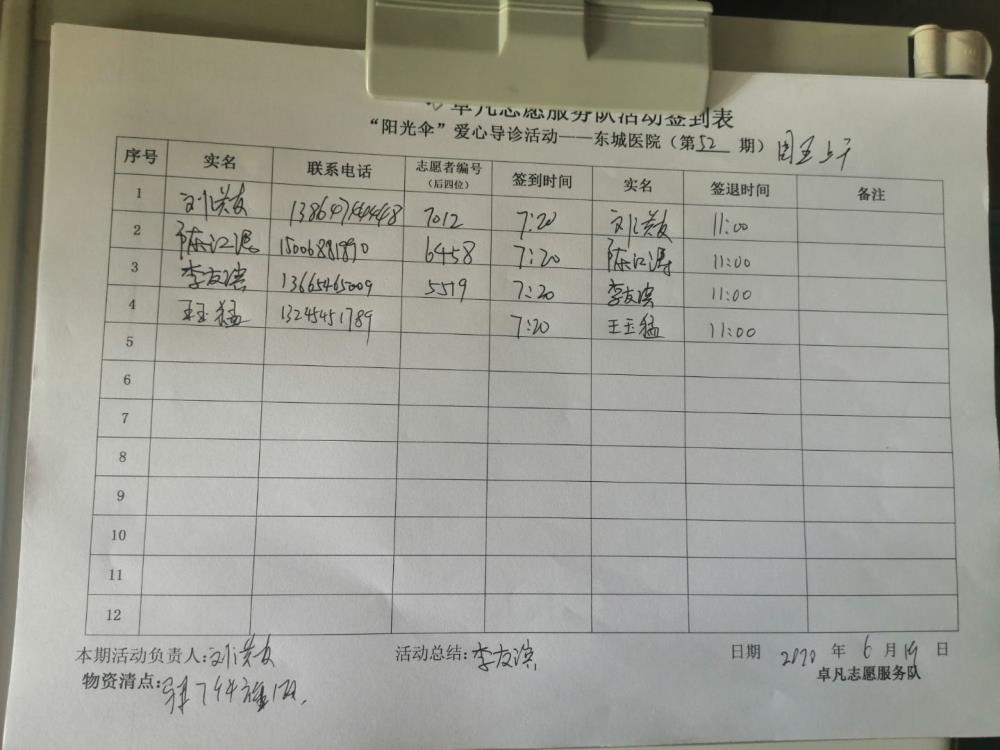 卓凡志愿服务队活动签到表
“阳光伞”爱心导诊活动——东城医院（第52期）周五上午
序号 实名 联系电话 志愿者编号（后四位） 签到时间 实名 签退时间 备注
1 刘洪友 13864744448 7012 7:20 刘洪友 11:00
2 陈江涛 15006881890 6458 7:20 陈江涛 11:00
3 李友滨 13665465009 5519 7:20 李友滨 11:00
4 王玉猛 13245451789 7:20 王玉猛 11:00
5
6
7
8
9
10
11
12
本期活动负责人:刘洪友 活动总结:李友滨 日期 2020 年 6 月 19 日
物资清点: 卓凡志愿服务队